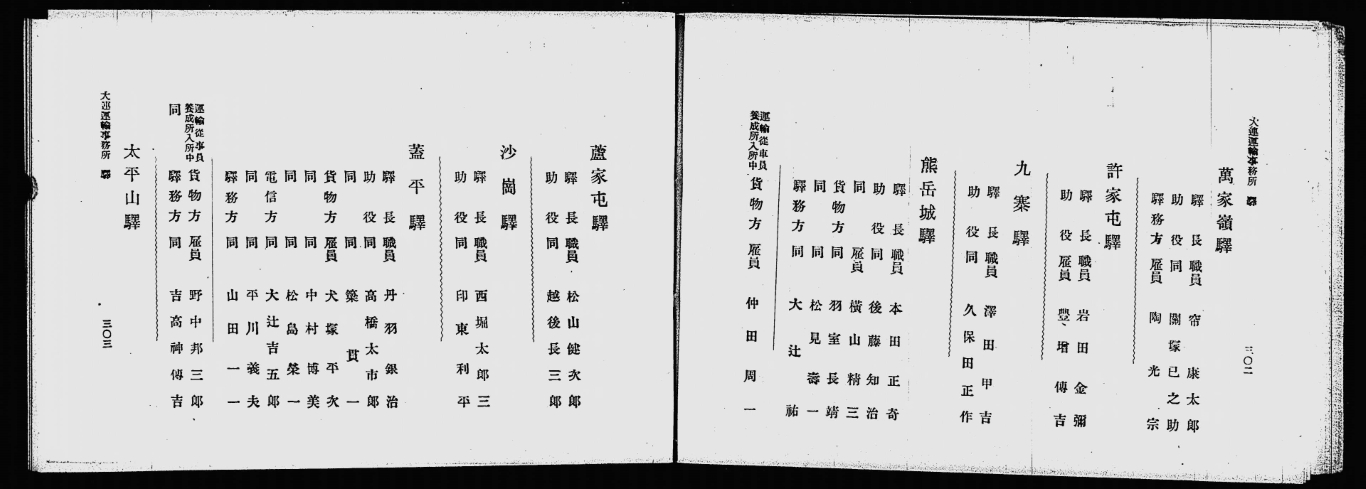 大連運輸事務所
三〇二
萬家嶺驛
驛長 職員 帘康太郎
助役 同 關塚已之助
驛務方 雇員 陶光宗
許家屯驛
驛長 職員 岩田金彌
助役 雇員 豐增傳吉
九寨驛
驛長 職員 澤田甲吉
助役 同 久保田正作
熊岳城驛
驛長 職員 本田正奇
助役 同 後藤知治
同 雇員 橫山精三
貨物方 同 羽室長靖
同 同 松見壽一
驛務方 同 大辻祐
運輸從事員養成所入所中 貨物方 雇員 仲田周一
蘆家屯驛
驛長 職員 松山健次郎
助役 同 越後長三郎
沙崗驛
驛長 職員 西堀太郎三
助役 同 印東利平
蓋平驛
驛長 職員 丹羽銀治
助役 同 高橋太市郎
同 同 築貫一
貨物方 雇員 犬塚平次
同 同 中村博美
同 同 松島榮一
電信方 同 大辻吉五郎
同 同 平川義夫
驛務方 同 山田一一
運輸從事員養成所入所中 貨物方 雇員 野中邦三郎
同 驛務方 同 吉高神傳吉
太平山驛
大連運輸事務所
三〇三